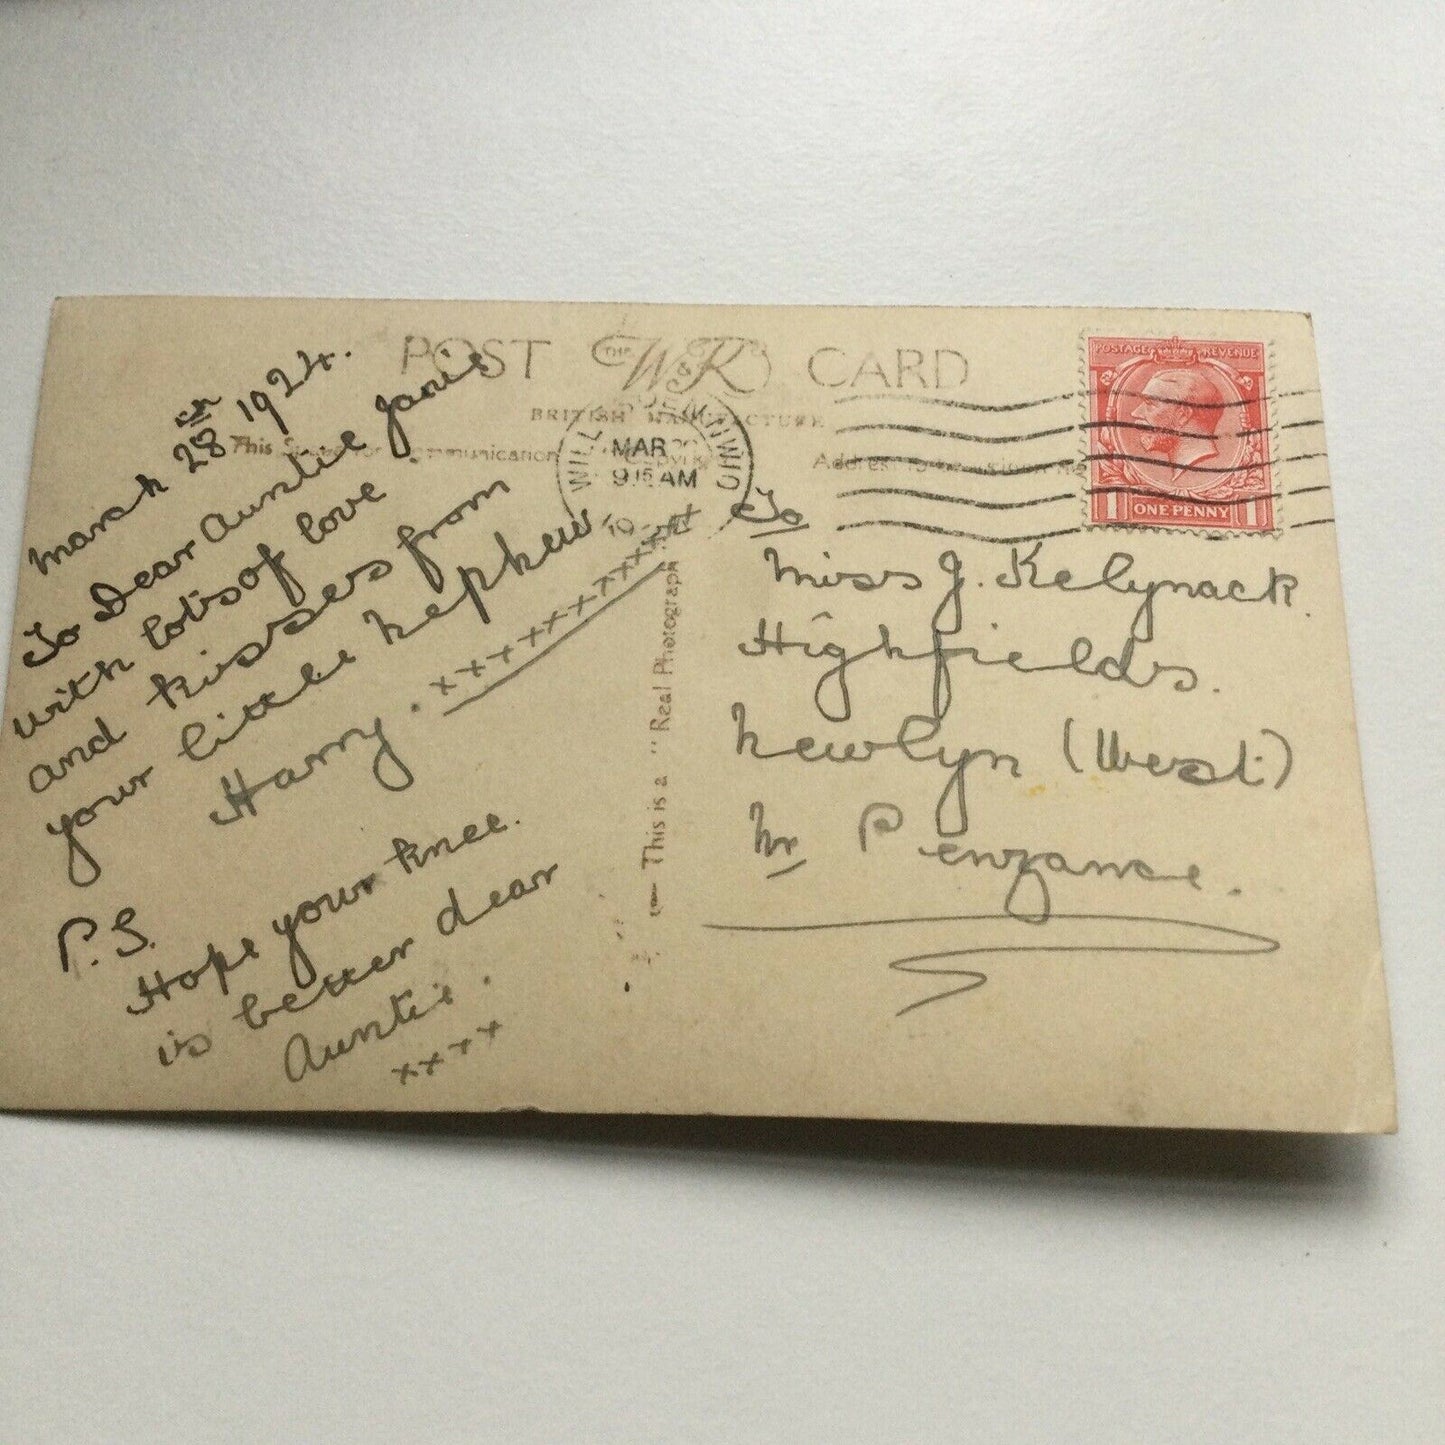 POST CARD
THE
W&R
BRITISH MANUFACTURE
This for Communication
Address
March 28th 1924.
To Dear Auntie Janie
with lots of love
and kisses from
your little nephew,
Harry. xxxxxxxxxxxxx
P.S.
Hope your knee.
is better dear
Auntie.
xxxx
This is a "Real Photograph
MAR
9.15 AM
POSTAGE REVENUE
1 ONE PENNY 1
To
Miss J. Kelynack.
Highfields.
Newlyn (West)
Nr Penzance.